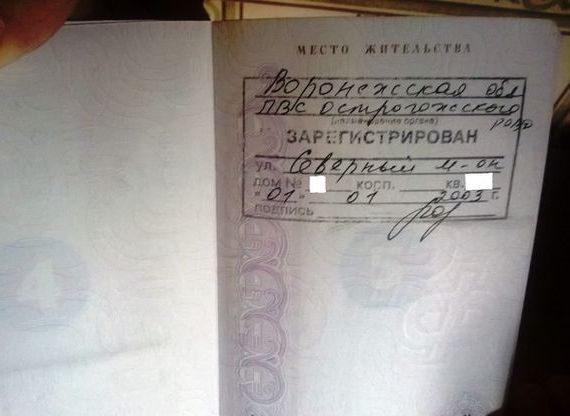 МЕСТО ЖИТЕЛЬСТВА
Воронежская обл
ПВС Острогожского
РОВД
(наименование органа)
ЗАРЕГИСТРИРОВАН
ул. Северный м-он
ДОМ № КОРП. КВ.
"01" 01 2003 г.
ПОДПИСЬ